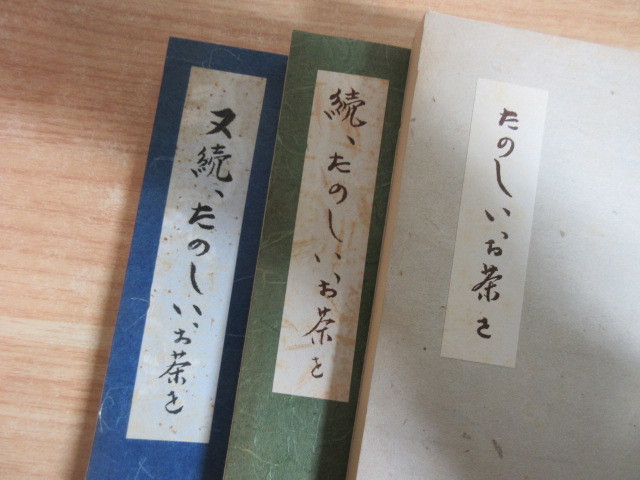 たのしいお茶を
続、たのしいお茶を
又続、たのしいお茶を